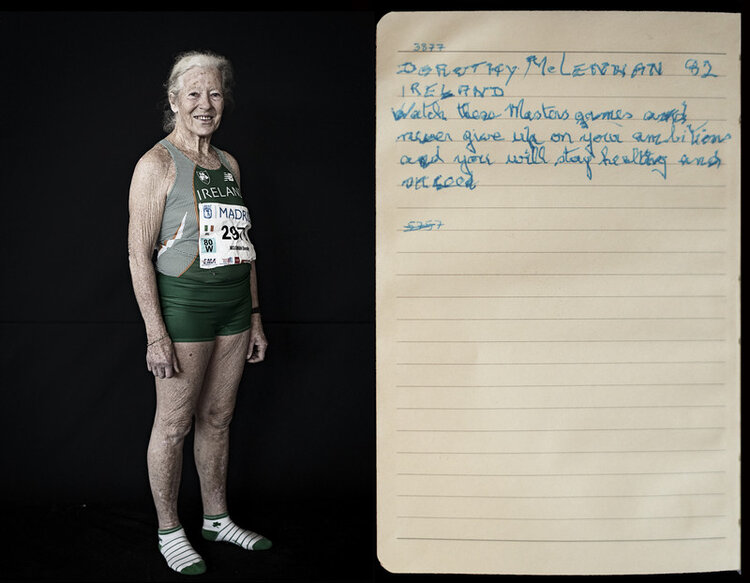 IRELAN
MADR
297
80
W
3877
DOROTHY McLENNAN 82
IRELAND
Watch these Masters games and
never give up on your ambitions
and you will stay healthy and